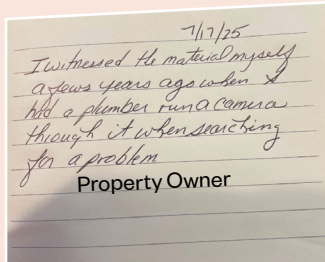 7/17/25
I witnessed the material myself
a fews years ago when I
had a plumber run a camera
through it when searching
for a problem
Property Owner